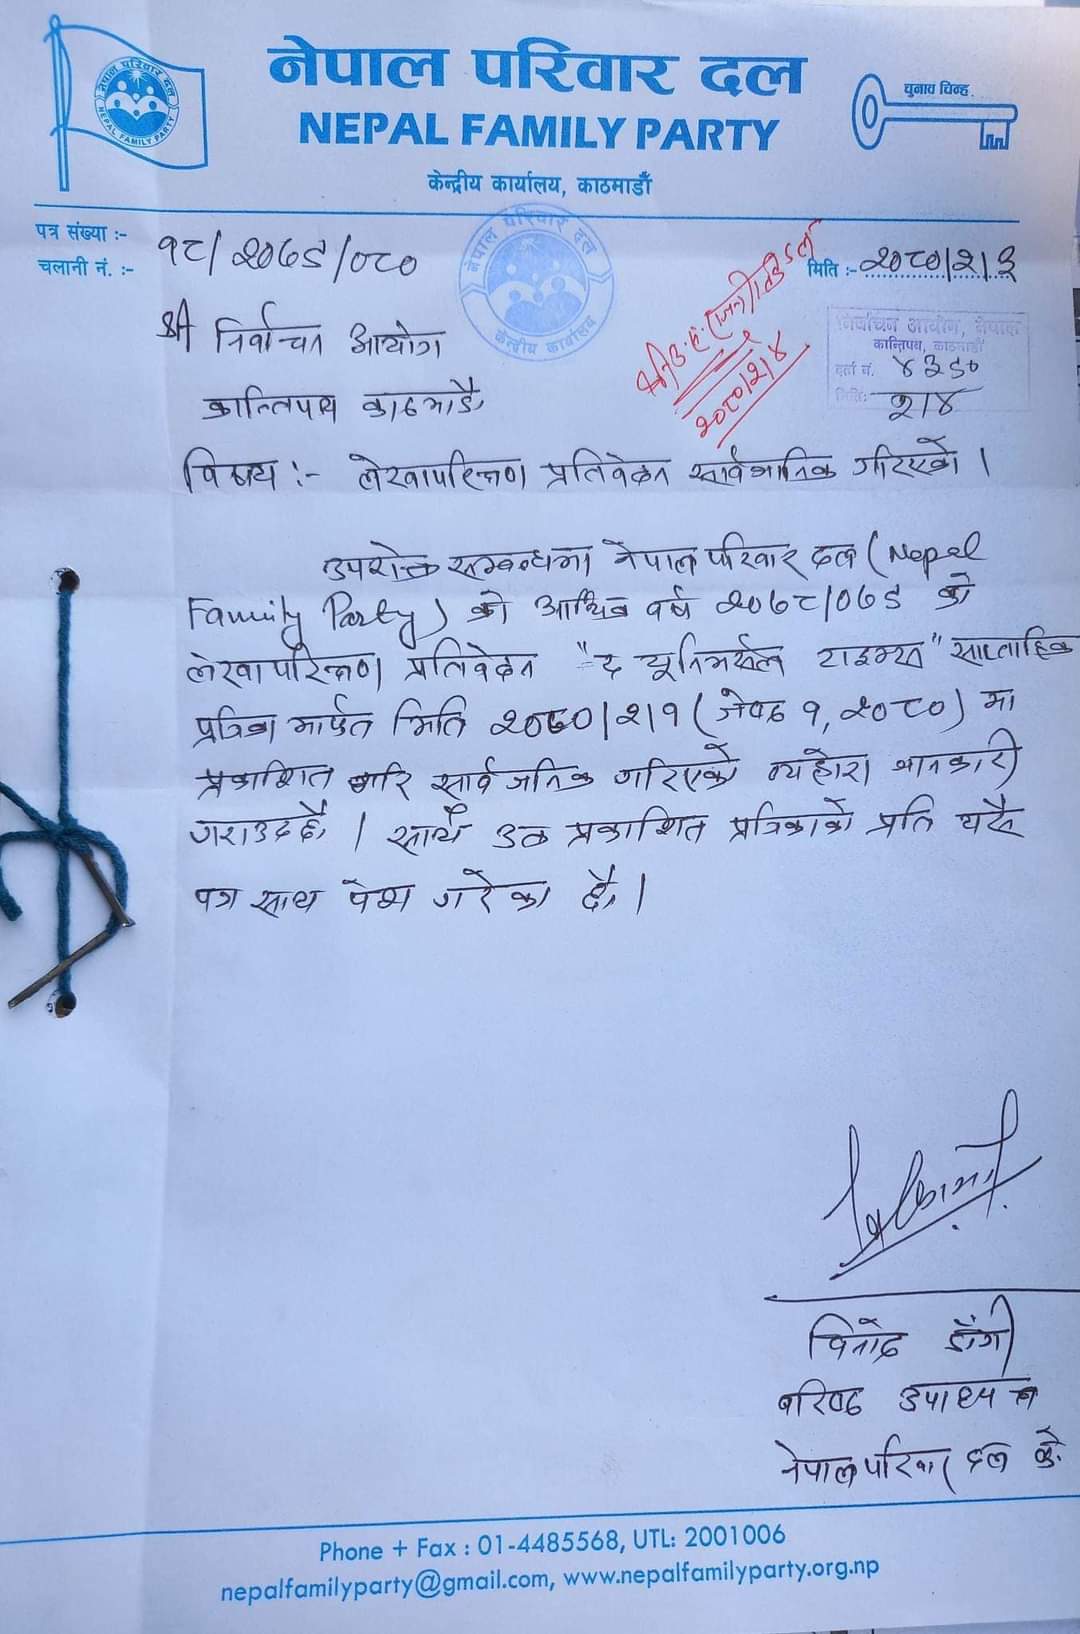 नेपाल परिवार दल
NEPAL FAMILY PARTY
नेपाल परिवार दल
NEPAL FAMILY PARTY
चुनाव चिन्ह
केन्द्रीय कार्यालय, काठमाडौँ
पत्र संख्या :-
चलानी नं. :-
१८/२०७९/०८०
नेपाल परिवार दल
केन्द्रीय कार्यालय
मिति :- २०८०/२/३
२०८०/२/४
निर्वाचन आयोग, नेपाल
कान्तिपथ, काठमाडौं
दर्ता नं. ४३९०
मितिः २/४
श्री निर्वाचन आयोग
कान्तिपथ काठमाडौं
विषय :- लेखापरिक्षण प्रतिवेदन सार्वजानिक गरिएको ।
उपरोक्त सम्बन्धमा नेपाल परिवार दल (Nepal
Family Party) को आर्थिक वर्ष २०७८/०७९ को
लेखापरिक्षण प्रतिवेदन "द युनिभर्सल टाइम्स" साप्ताहिक
पत्रिका मार्फत मिति २०८०/२/१ (जेष्ठ १, २०८०) मा
प्रकाशित गरि सार्वजनिक गरिएको व्यहोरा जानकारी
गराउदछौ । साथै उक्त प्रकाशित पत्रिकाको प्रति यसै
पत्र साथ पेश गरेका छौ ।
विनोद डाँगी
वरिष्ठ उपाध्यक्ष
नेपाल परिवार दल के.
Phone + Fax : 01-4485568, UTL: 2001006
nepalfamilyparty@gmail.com, www.nepalfamilyparty.org.np